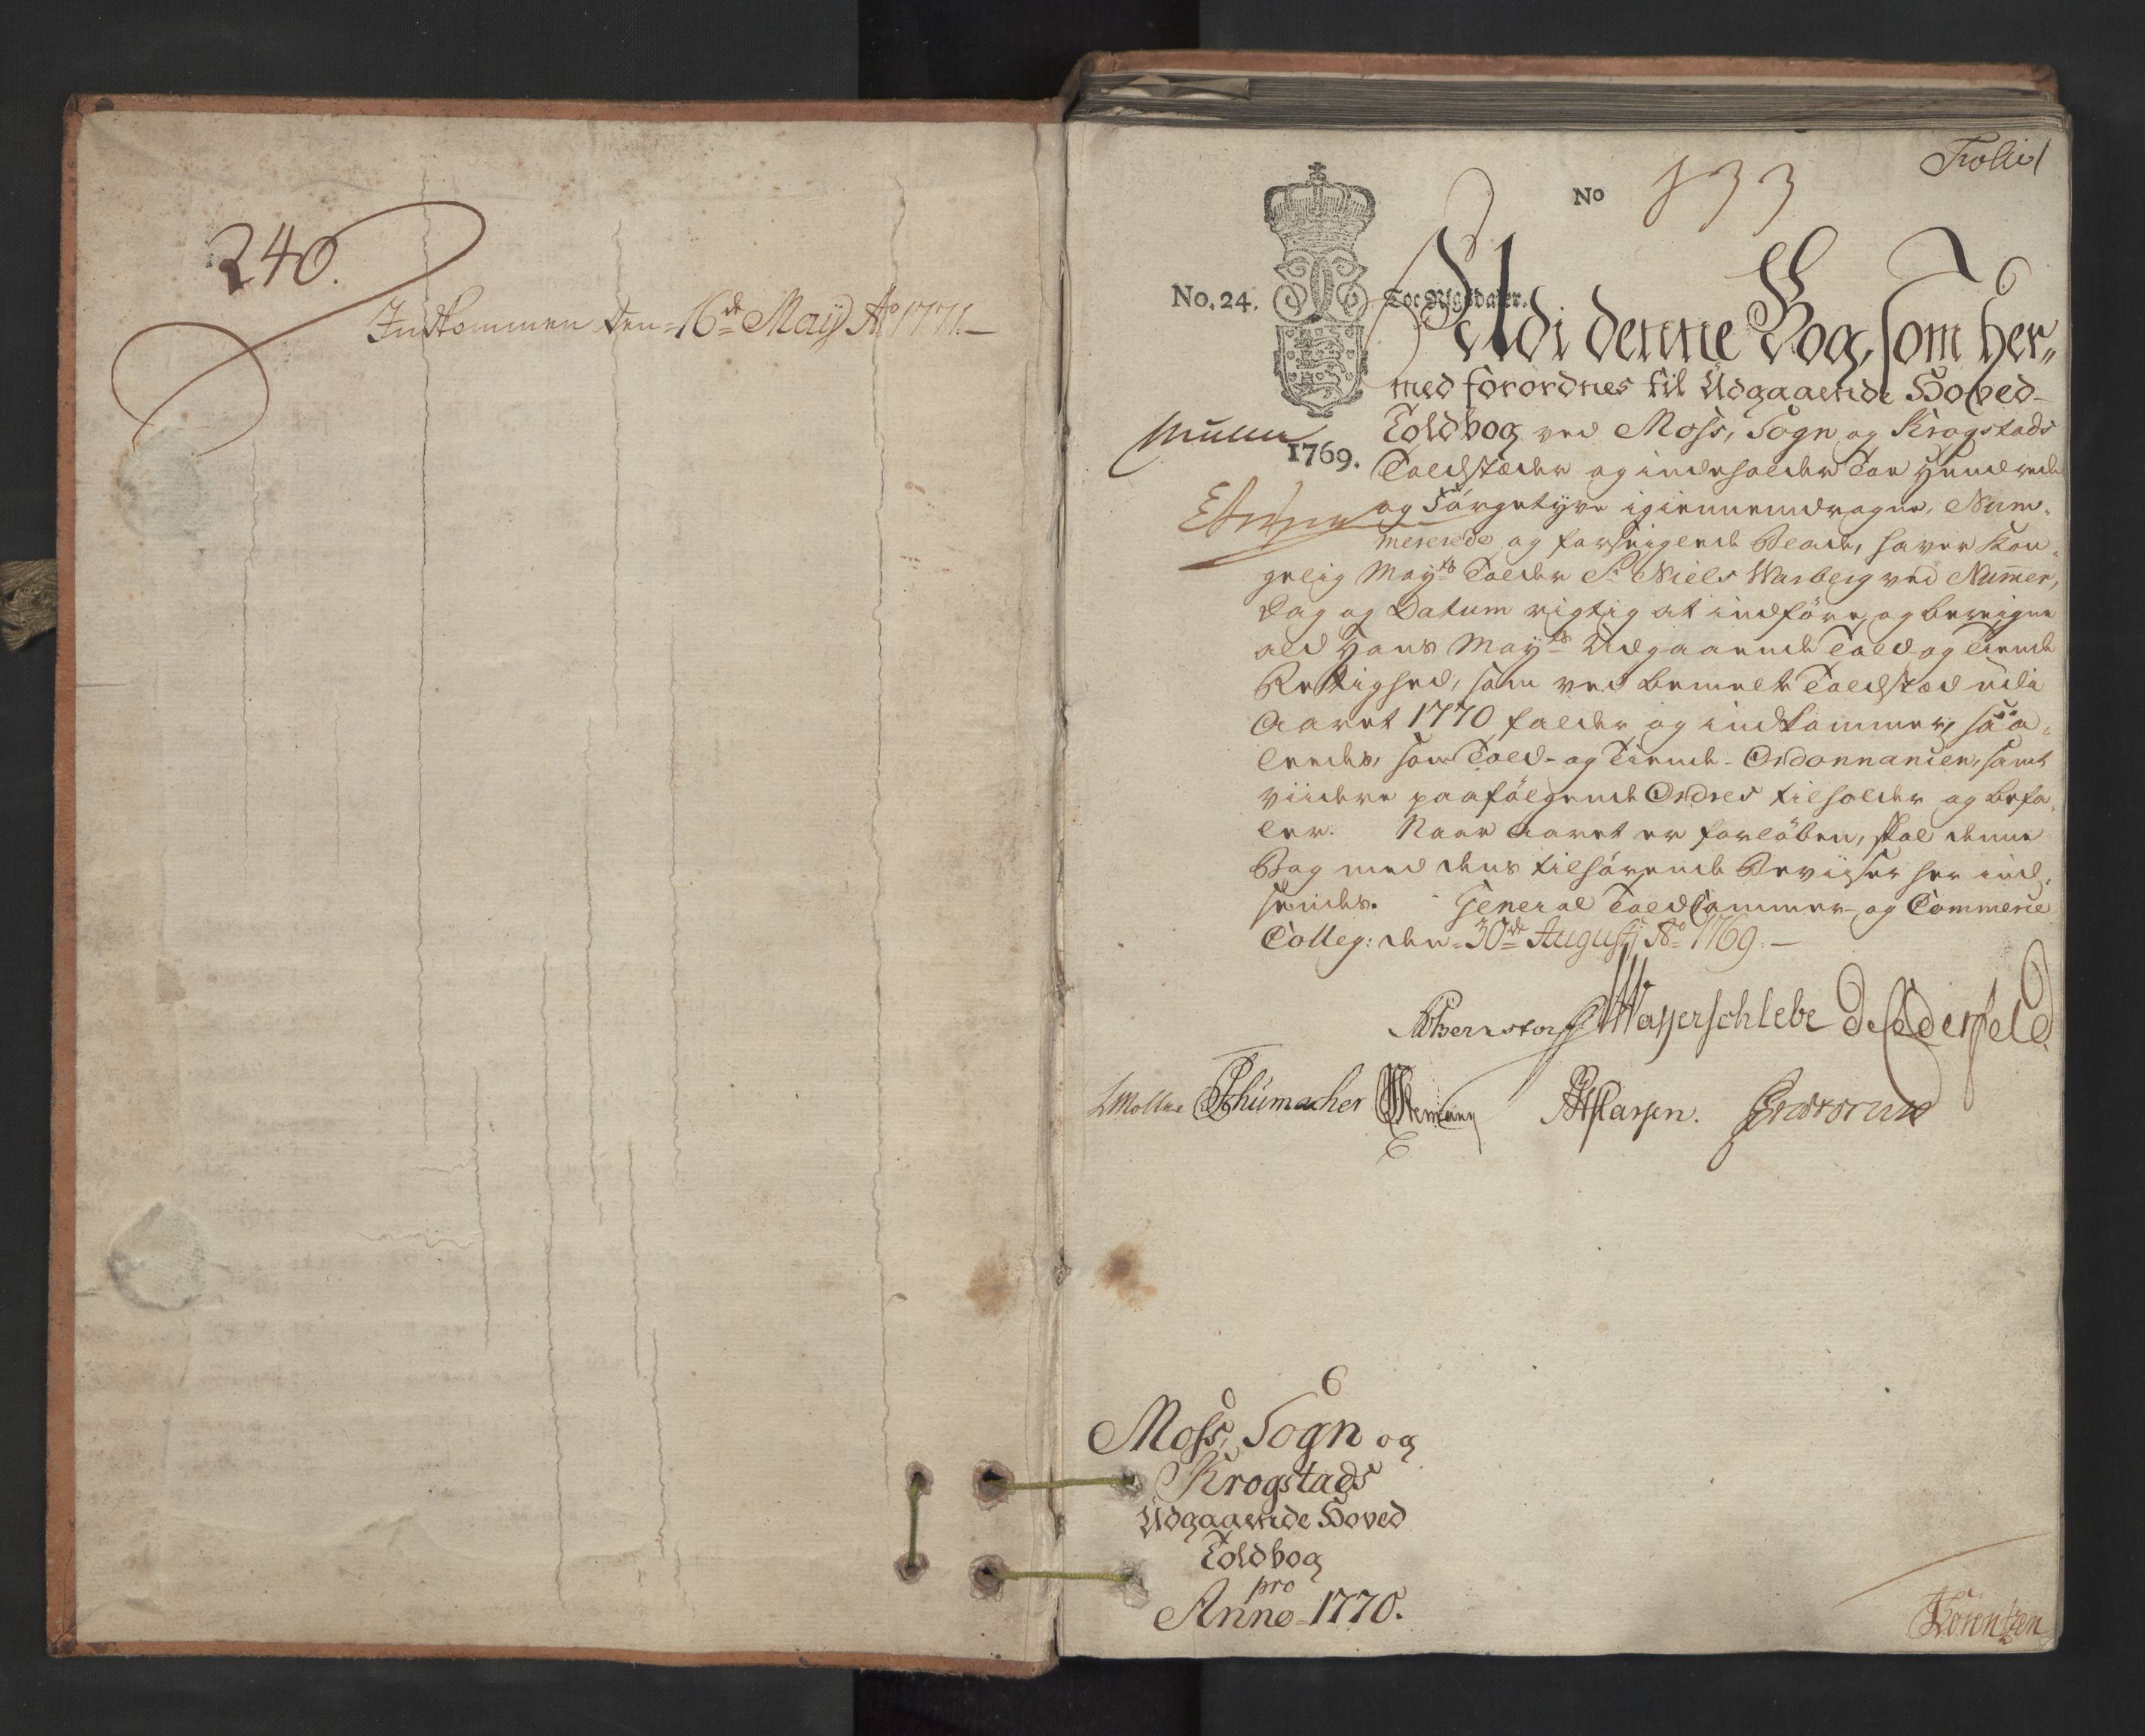 240.
Indkommen den 16de Maÿ Ao 1771.
Folio 1
No 133
No. 24.
Toe Rigsdaler.
1769.
Udi denne Bog, som her„
med forordnes til Udgaaende Hoved-
Toldbog ved Moss, Sogn og Krogstads
Toldstæder og indeholder Toe Hundrede
og Förgetyve igiennemdragne, Num-
mererede og forseiglede Blade, haver Kon-
gelig Mayts Tolder Sr Niels Warberg ved Numer,
Dag og Datum rigtig at indföre og beregne
ald Hans Mayts Udgaaende Told og Tiende
Rettighed, som ved bemelte Toldsted udi
Aaret 1770 falder og indkommer, saa-
leedes, som Told- og Tiende-Ordonnancen, samt
viidere paafölgende Ordres tilholder og befa-
ler. Naar Aaret er forlöben, skal denne
Bog med dens tilhörende Beviiser her ind-
sendes. General Told Cammer- og Commerce
Colleg: den 30de Augustj Ao 1769.
Bernstorff Wasserschlebe de
Schumacher
Moss, Sogn og
Krogstads
Udgaaende Hoved
Toldbog
pro
Anno 1770.